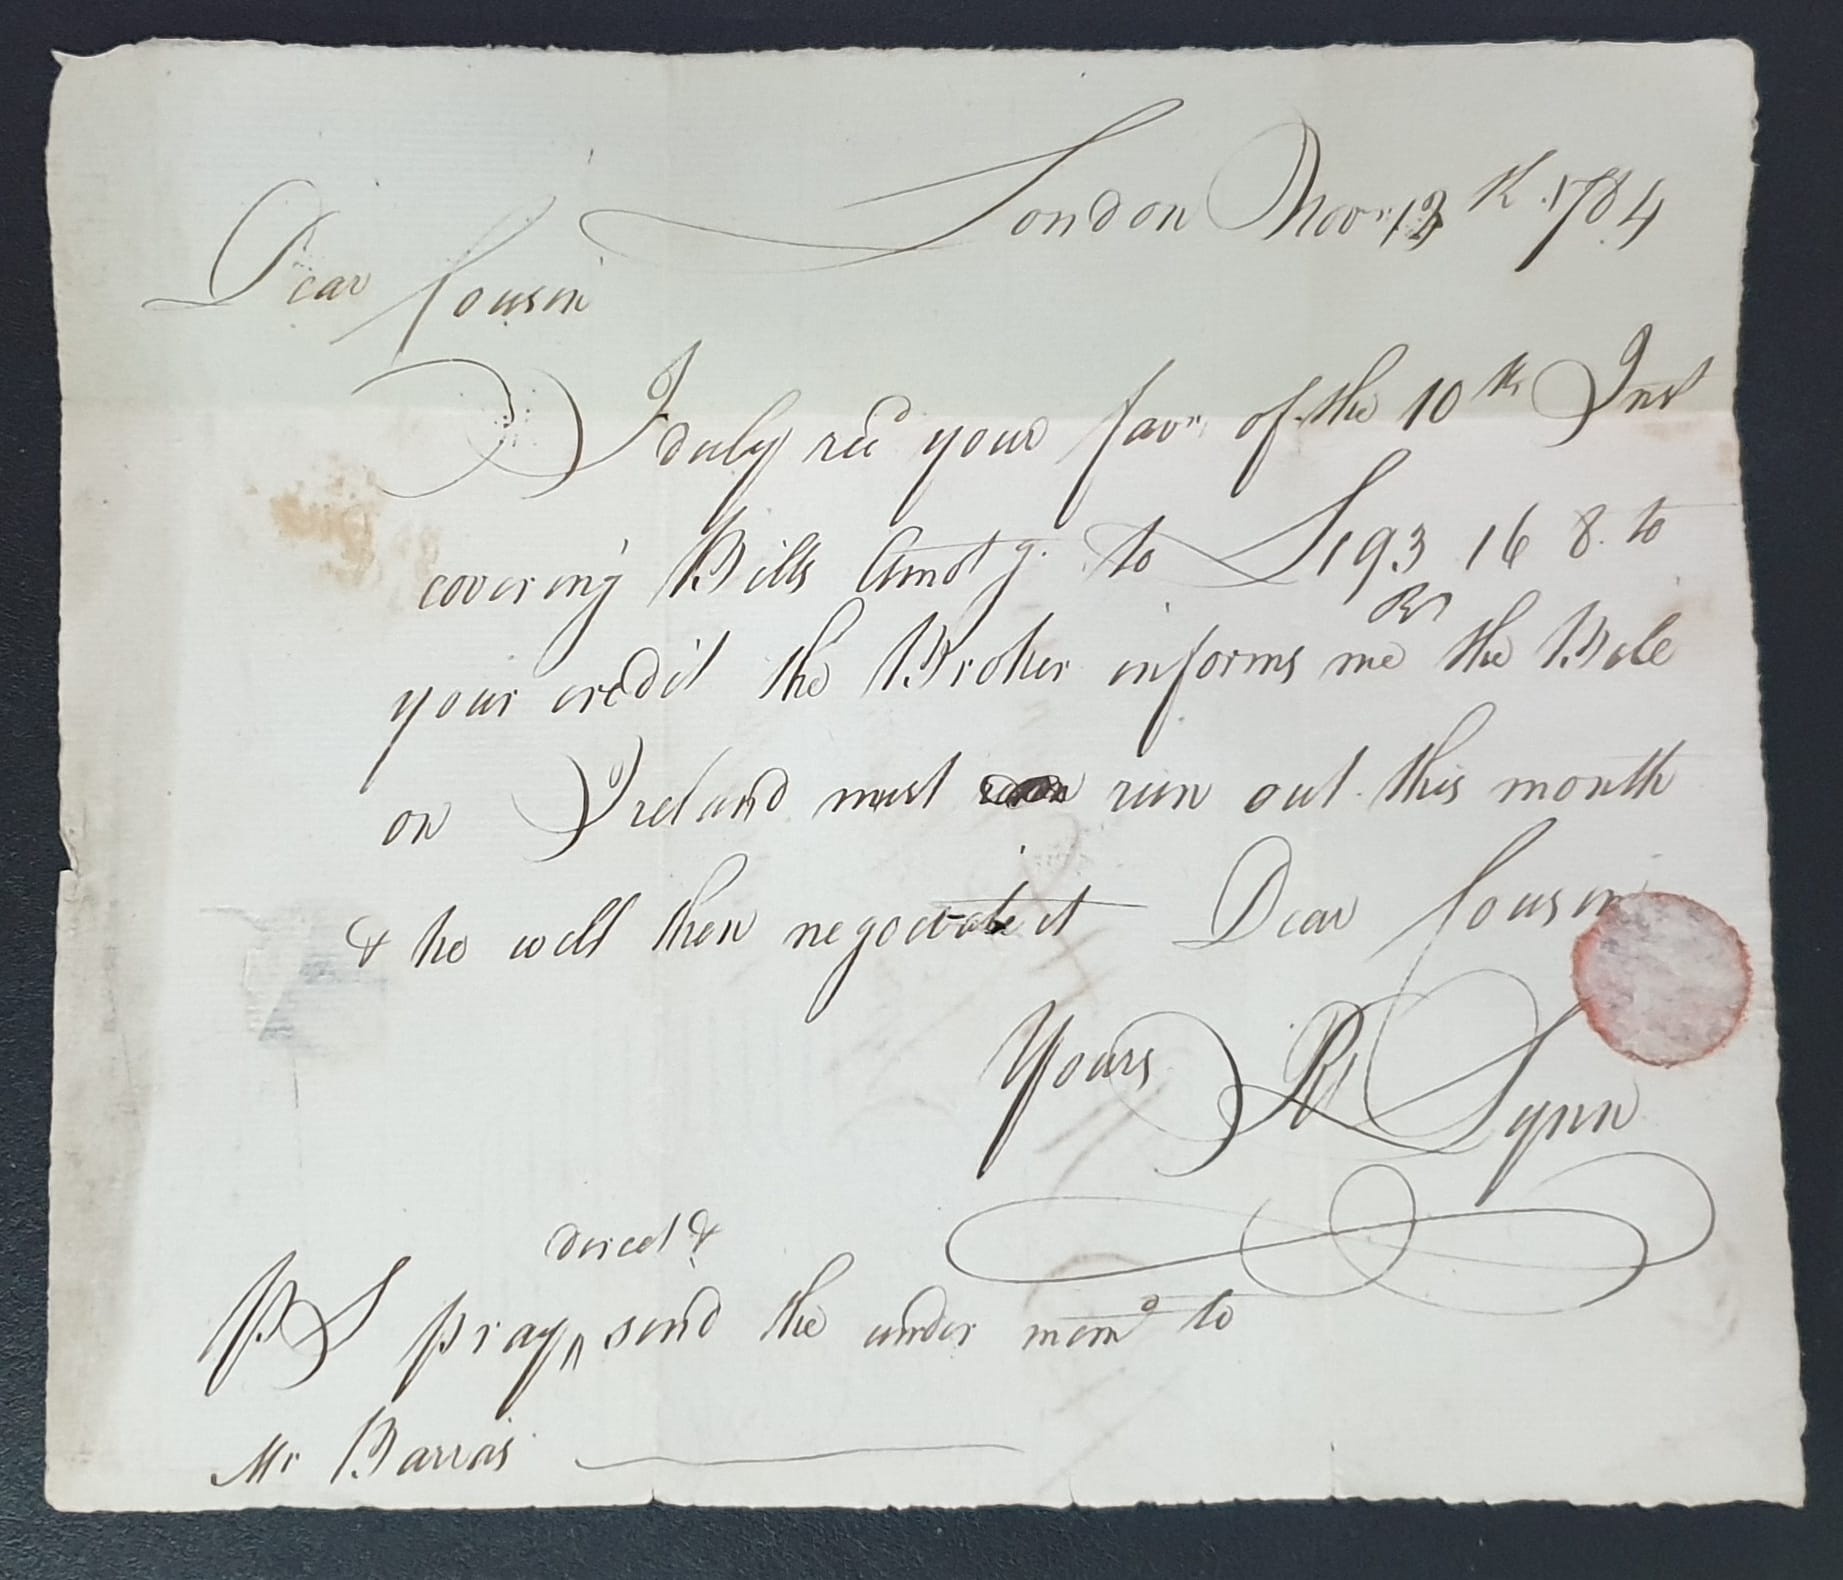 London Novr. 12th 1784
Dear Cousin
I duly recd your favr. of the 10th Inst
covering Bills Amotg. to £193 16 8. to
your credit the Broker informs me the Bill
on Ireland must run out this month
& he will then negociate it Dear Cousin
Yours R Lynn
direct &
PS pray ^ send the under memd to
Mr Barras